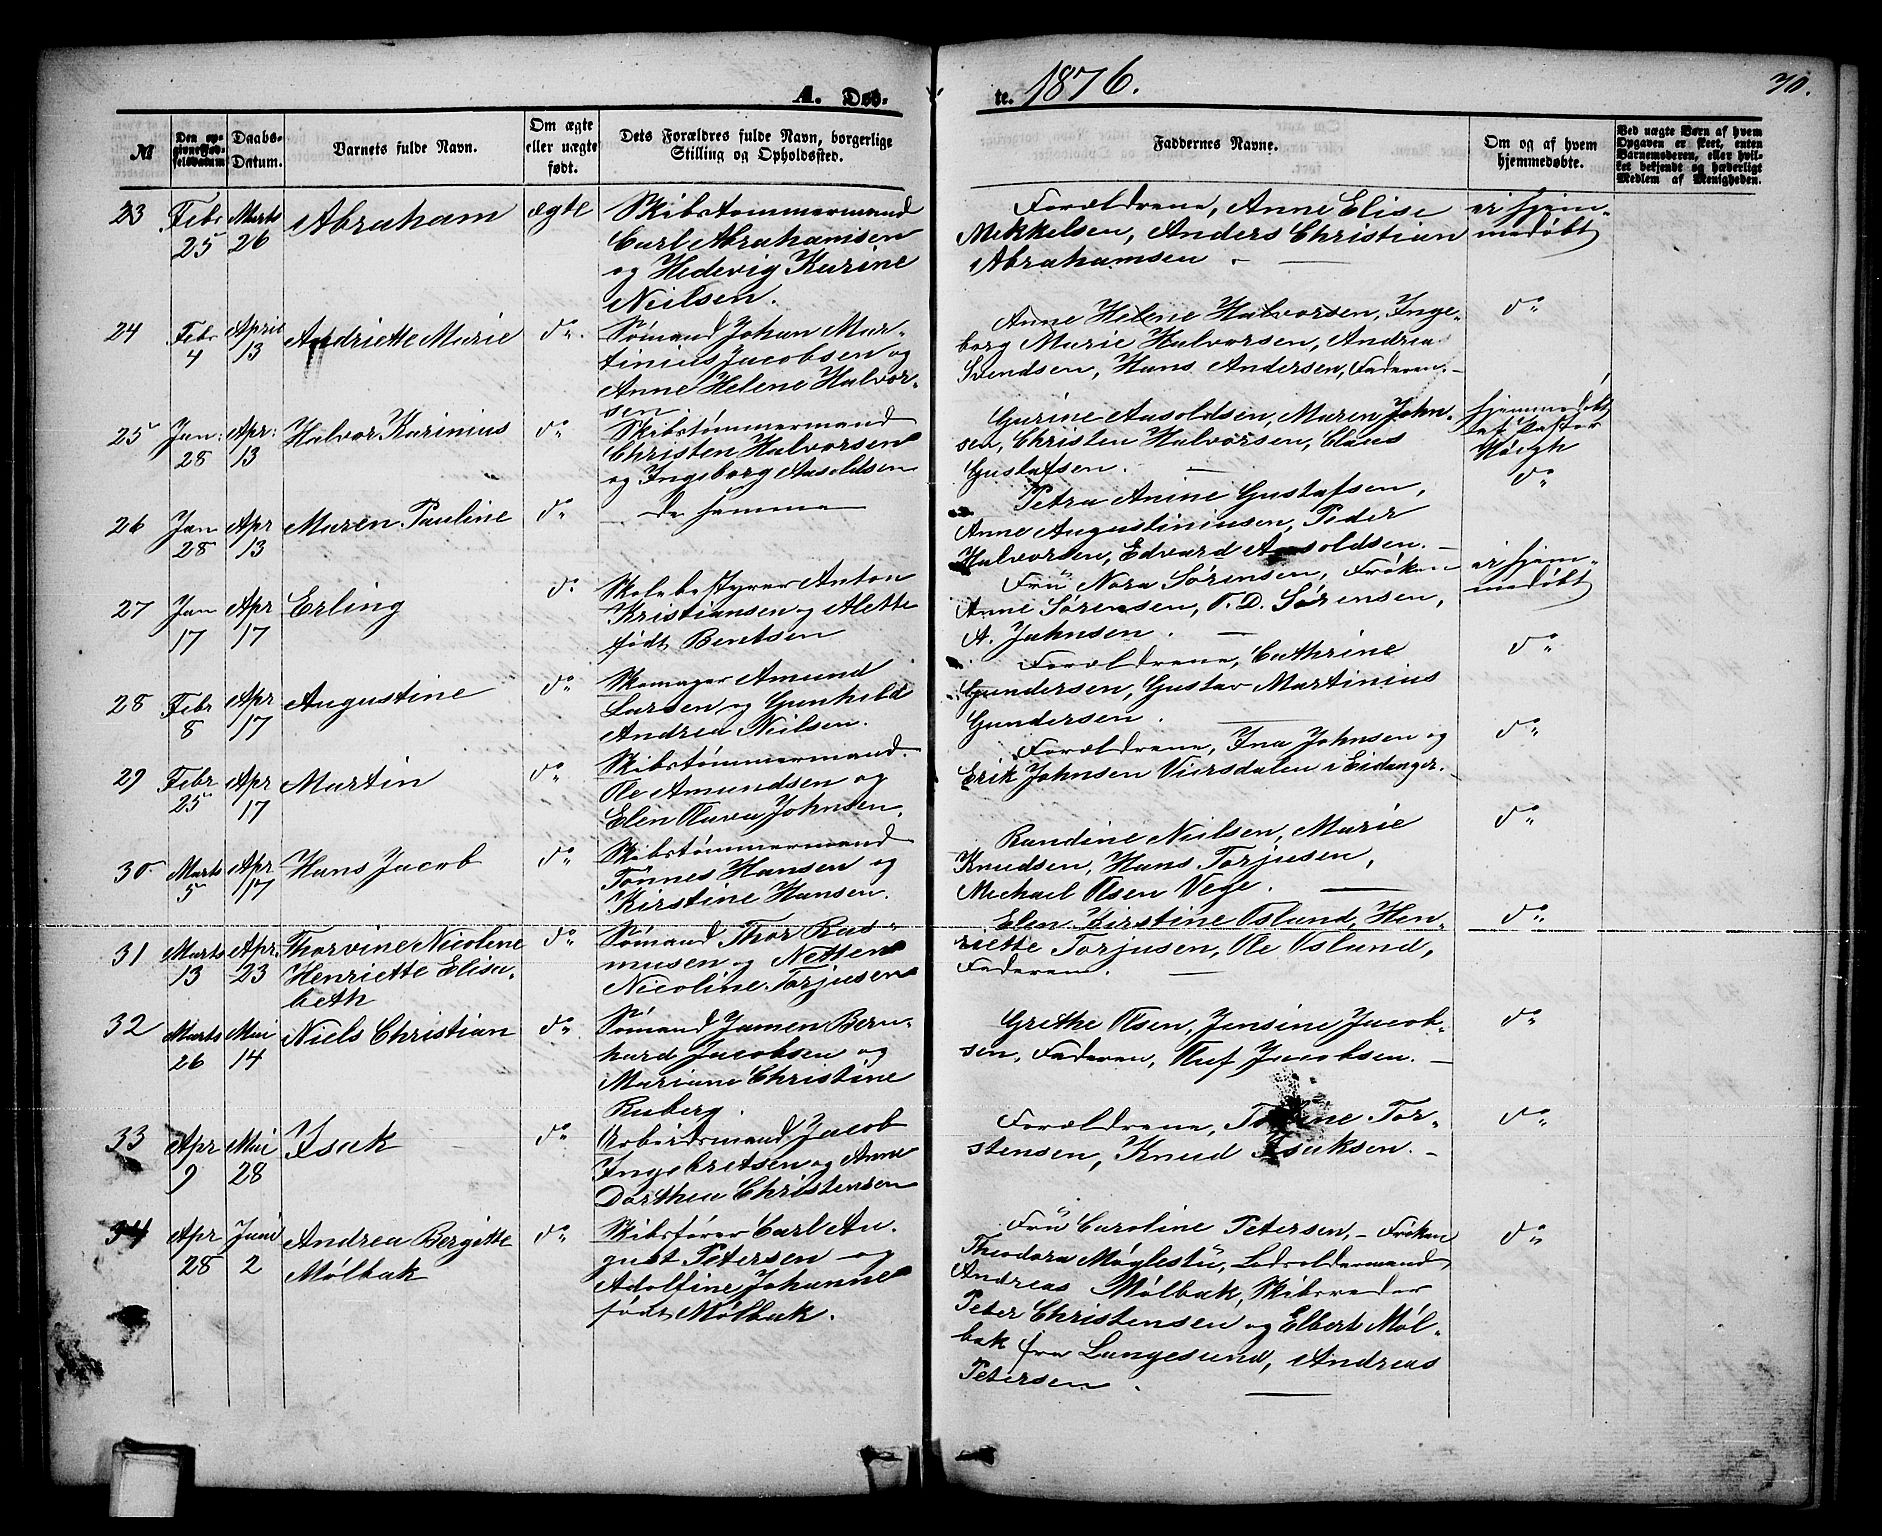 A. Døb-
te. 1876.
70.
№
Den op-
givne Fød-
selsdatum
Daabs-
Datum.
Barnets fulde Navn.
Om ægte
eller uægte
født.
Dets Forældres fulde Navn, borgerlige
Stilling og Opholdssted.
Faddernes Navne.
Om og af hvem
hjemmedøbte.
Ved uægte Børn af hvem
Opgaven er skeet, enten
Barnemoderen, eller hvil-
ket bekjendt og hæderligt
Medlem af Menigheden.
23 Febr 25 Marts 26 Abraham ægte
Skibstømmermand
Carl Abrahamsen
og Hedevig Karine
Nielsen.
Forældrene, Anne Elise
Mikkelsen, Anders Christian
Abrahamsen.
er hjem-
medøbt
24 Febr 4 April 13 Andriette Marie do.
Sømand Johan Mar-
tinius Jacobsen og
Anne Helene Halvor-
sen
Anne Helene Halvorsen, Inge-
borg Marie Halvorsen, Andrea
Svendsen, Hans Andersen, Faderen.
do
25 Jan: 28 Apr: 13 Halvor Karinius do
Skibstømmermand
Christen Halvorsen
og Ingeborg Aasoldsen
Gurine Aasoldsen, Maren John-
sen, Christen Halvorsen, Claus
Gustafsen.
hjemmedøbt
af Pastor
Høegh
26 Jan 28 Apr 13 Maren Pauline do
de samme
Petra Anine Gustafsen,
Anne Augustiniusen, Peder
Halvorsen, Edvard Aasoldsen.
do
27 Jan 17 Apr 17 Erling do
Skolebestyrer Anton
Kristiansen og Alette
født Bentsen
Frü Nora Sørensen, Frøken
Anne Sørensen, O. D. Sørensen,
A. Johnsen.
er hjem-
medøbt
28 Febr 8 Apr 17 Augustine do
Skomager Amund
Larsen og Gunhild
Andrea Nielsen.
Forældrene, Cathrine
Gundersen, Gustav Martinius
Gundersen.
do
29 Febr 25 Apr 17 Martin do
Skibstømmermand.
Ole Amundsen og
Elen Olava Johnsen.
Forældrene, Ina Johnsen og
Erik Johnsen Viersdalen i Eidanger.
do
30 Marts 5 Apr 17 Hans Jacob do
Skibstømmermand
Tønnes Hansen og
Kirstine Hansen.
Randine Nielsen, Marie
Knudsen, Hans Torjusen,
Michael Olsen Vege.
do
31 Marts 13 Apr. 23 Thorvine Nicolene
Henriette Elisa-
beth
do
Sømand Thor Ras-
musen og Netten
Nicoline Torjusen
Elen Kirstine Osland, Hen-
riette Torjusen, Ole Osland,
Faderen.
do
32 Marts 26 Mai 14 Niels Christian do
Sømand Jamen Bern-
hard Jacobsen og
Mariane Christine
Ruberg.
Grethe Olsen, Jensine Jacob-
sen, Faderen, Oluf Jacobsen.
do
33 Apr 9 Mai 28 Isak do
Arbeidsmand Jacob
Ingebritsen og Anne
Dorthea Christensen
Forældrene, Tor-
stensen, Knud Isaksen.
do
34 Apr 28 Juni 2 Andrea Bergitte
Mølbak
do
Skibsfører Carl Au-
gust Petersen og
Adolfine Johanne
født Mølbak.
Frü Caroline Petersen, Frøken
Theodora Møglestü, Lodsoldermand
Andreas Mølbak, Skibsreder
Peter Christensen og Elbert Møl-
bak fra Langesund, Andreas
Petersen.
do